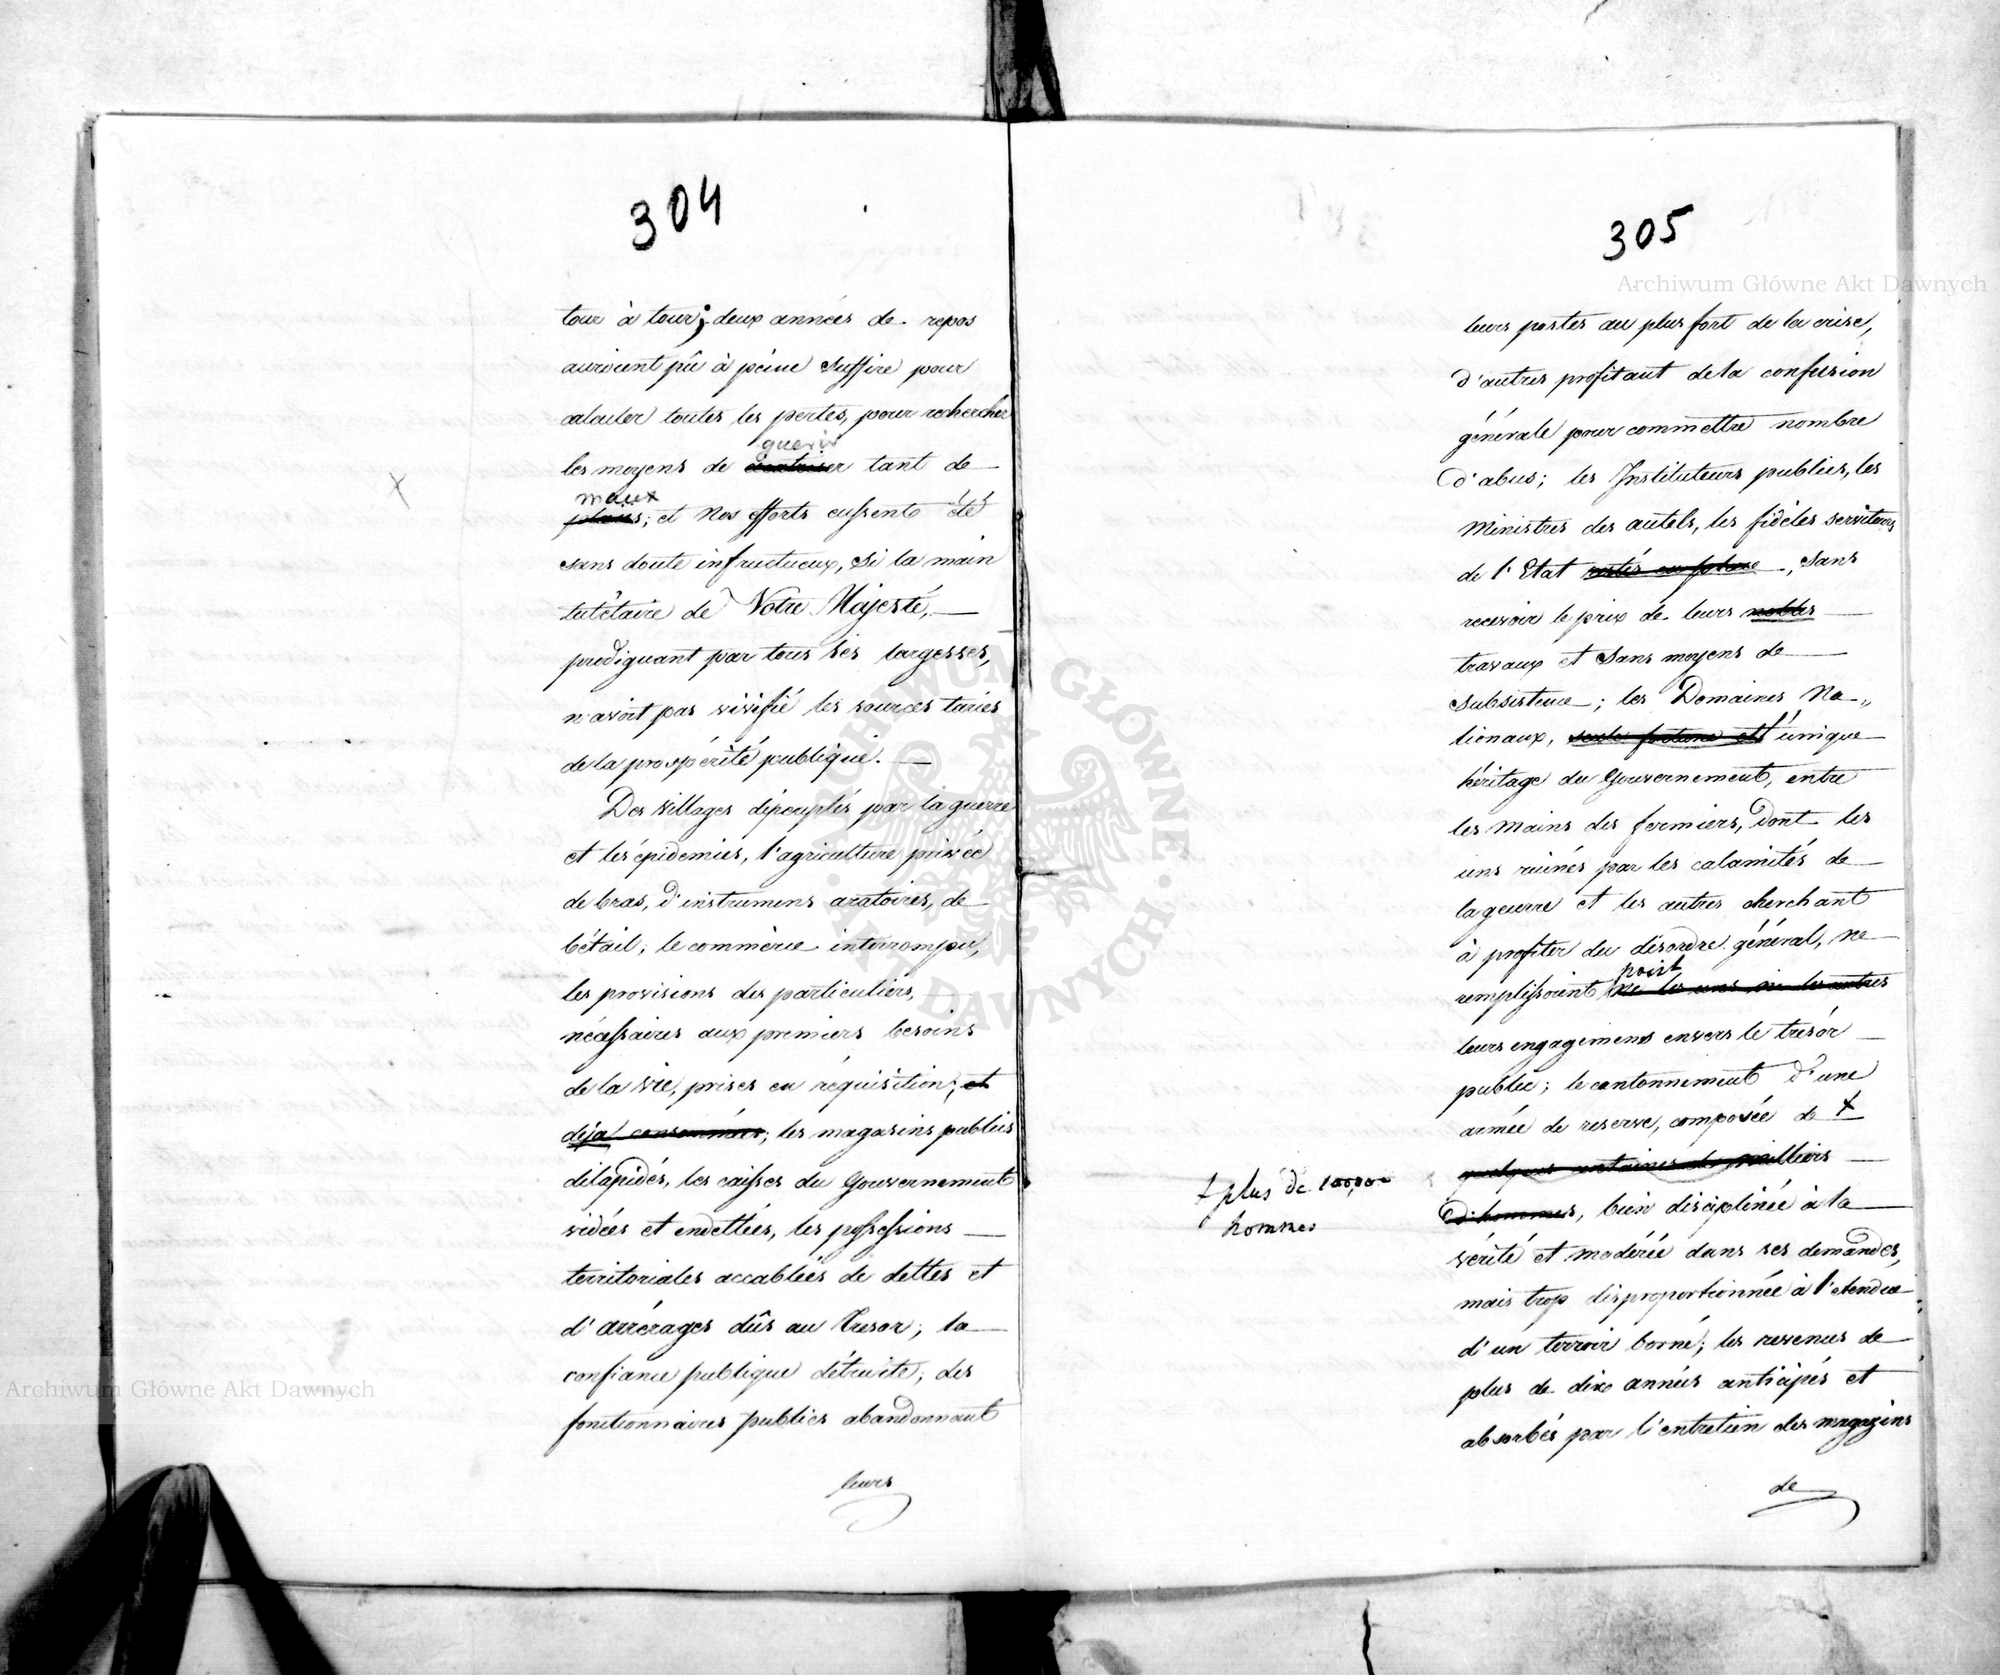 304
tour à tour; deux années de repos
auroient pû à peine suffire pour
calculer toutes les pertes, pour rechercher
guerir
les moyens de cicatriser tant de
maux
plaies; et Nos efforts eussent été
sans doute infructueux, si la main
tutélaire de Votre Majesté,
prodiguant par tous ses largesses,
n'avoit pas vivifié les sources taries
de la prospérité publique.
Des villages dépeuplés par la guerre
et les épidemies, l'agriculture privée
de bras, d'instrumens aratoires, de
bétail; le commèrce interrompu,
les provisions des particuliers,
nécessaires aux premiers besoins
de la vie, prises en réquisition; et
déja consommées; les magasins publics
dilapidés, les caisses du Gouvernement
vidées et endettées, les possessions
territoriales accablées de dettes et
d'arrérages dûs au Tresor; la
confiance publique détruite; des
fonctionnaires publics abandonnant
leurs
305
leurs postes au plus fort de la crise,
d'autres profitant de la confusion
générale pour commettre nombre
d'abus; les Instituteurs publics, les
Ministres des autels, les fidèles serviteurs
de l'Etat restés en place, sans
recevoir le prix de leurs nobles
travaux et sans moyens de
subsistence; les Domaines Na„
tionaux, seule fortune et l'unique
héritage du Gouvernement, entre
les mains des fermiers, dont les
uns ruinés par les calamités de
la guerre et les autres cherchant
à profiter du désordre général, ne
point
remplissoient ni les uns, ni les autres
leurs engagemens envers le trésor
public; le cantonnement d'une
armée de reserve, composée de +
quelques centaines de milliers
d'hommes, bien disciplinée à la
+ plus de 100,000
hommes
vérité et modérée dans ses demandes,
mais trop disproportionnée à l'etendue
d'un terroir borné; les revenus de
plus de dix années anticipés et
absorbés par l'entretien des magazins
de
Archiwum Główne Akt Dawnych
Archiwum Główne Akt Dawnych
ARCHIWUM GŁÓWNE AKT DAWNYCH